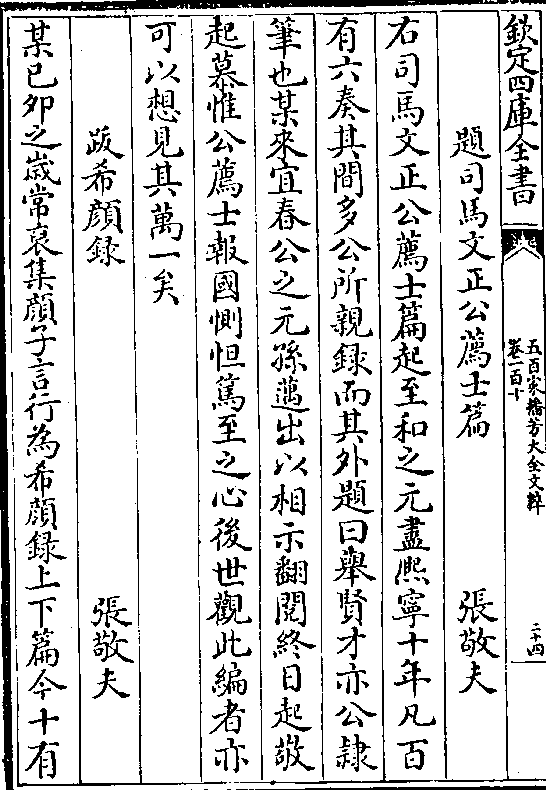 欽定四庫全書
五百家播芳大全文粹
卷一百十
二十四
題司馬文正公薦士篇 張敬夫
右司馬文正公薦士篇起至和之元盡熈寧十年凡百
有六奏其間多公所親録而其外題曰舉賢才亦公隷
筆也某來宜春公之元孫邁出以相示翻閱終日起敬
起慕惟公薦士報國惻怛篤至之心後世觀此編者亦
可以想見其萬一矣
跋希顔録 張敬夫
某已夘之歳常裒集顔子言行為希顔録上下篇今十有